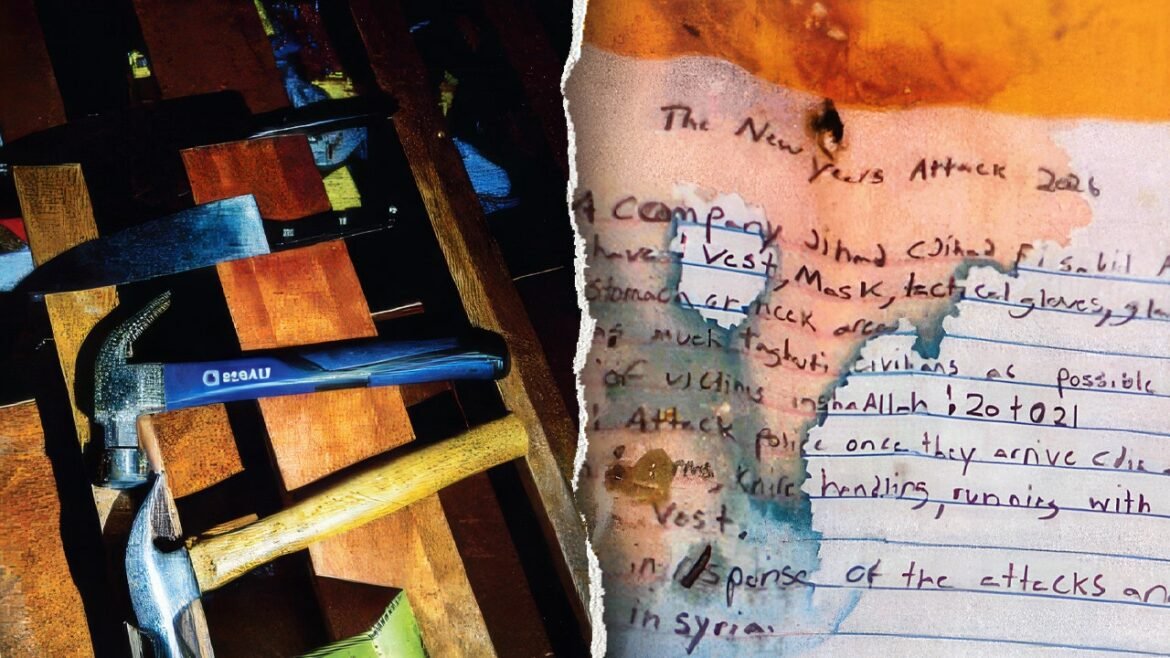 The New Years Attack 2026
A company Jihad (Jihad fi sabil
have: Vest, Mask, tactical gloves,
stomach or neck area
much taghuti civilians as possible
of victims inshaAllah : 20 to 21
Attack police once they arrive
Knife handling, running with
Vest.
in response of the attacks
in syria.